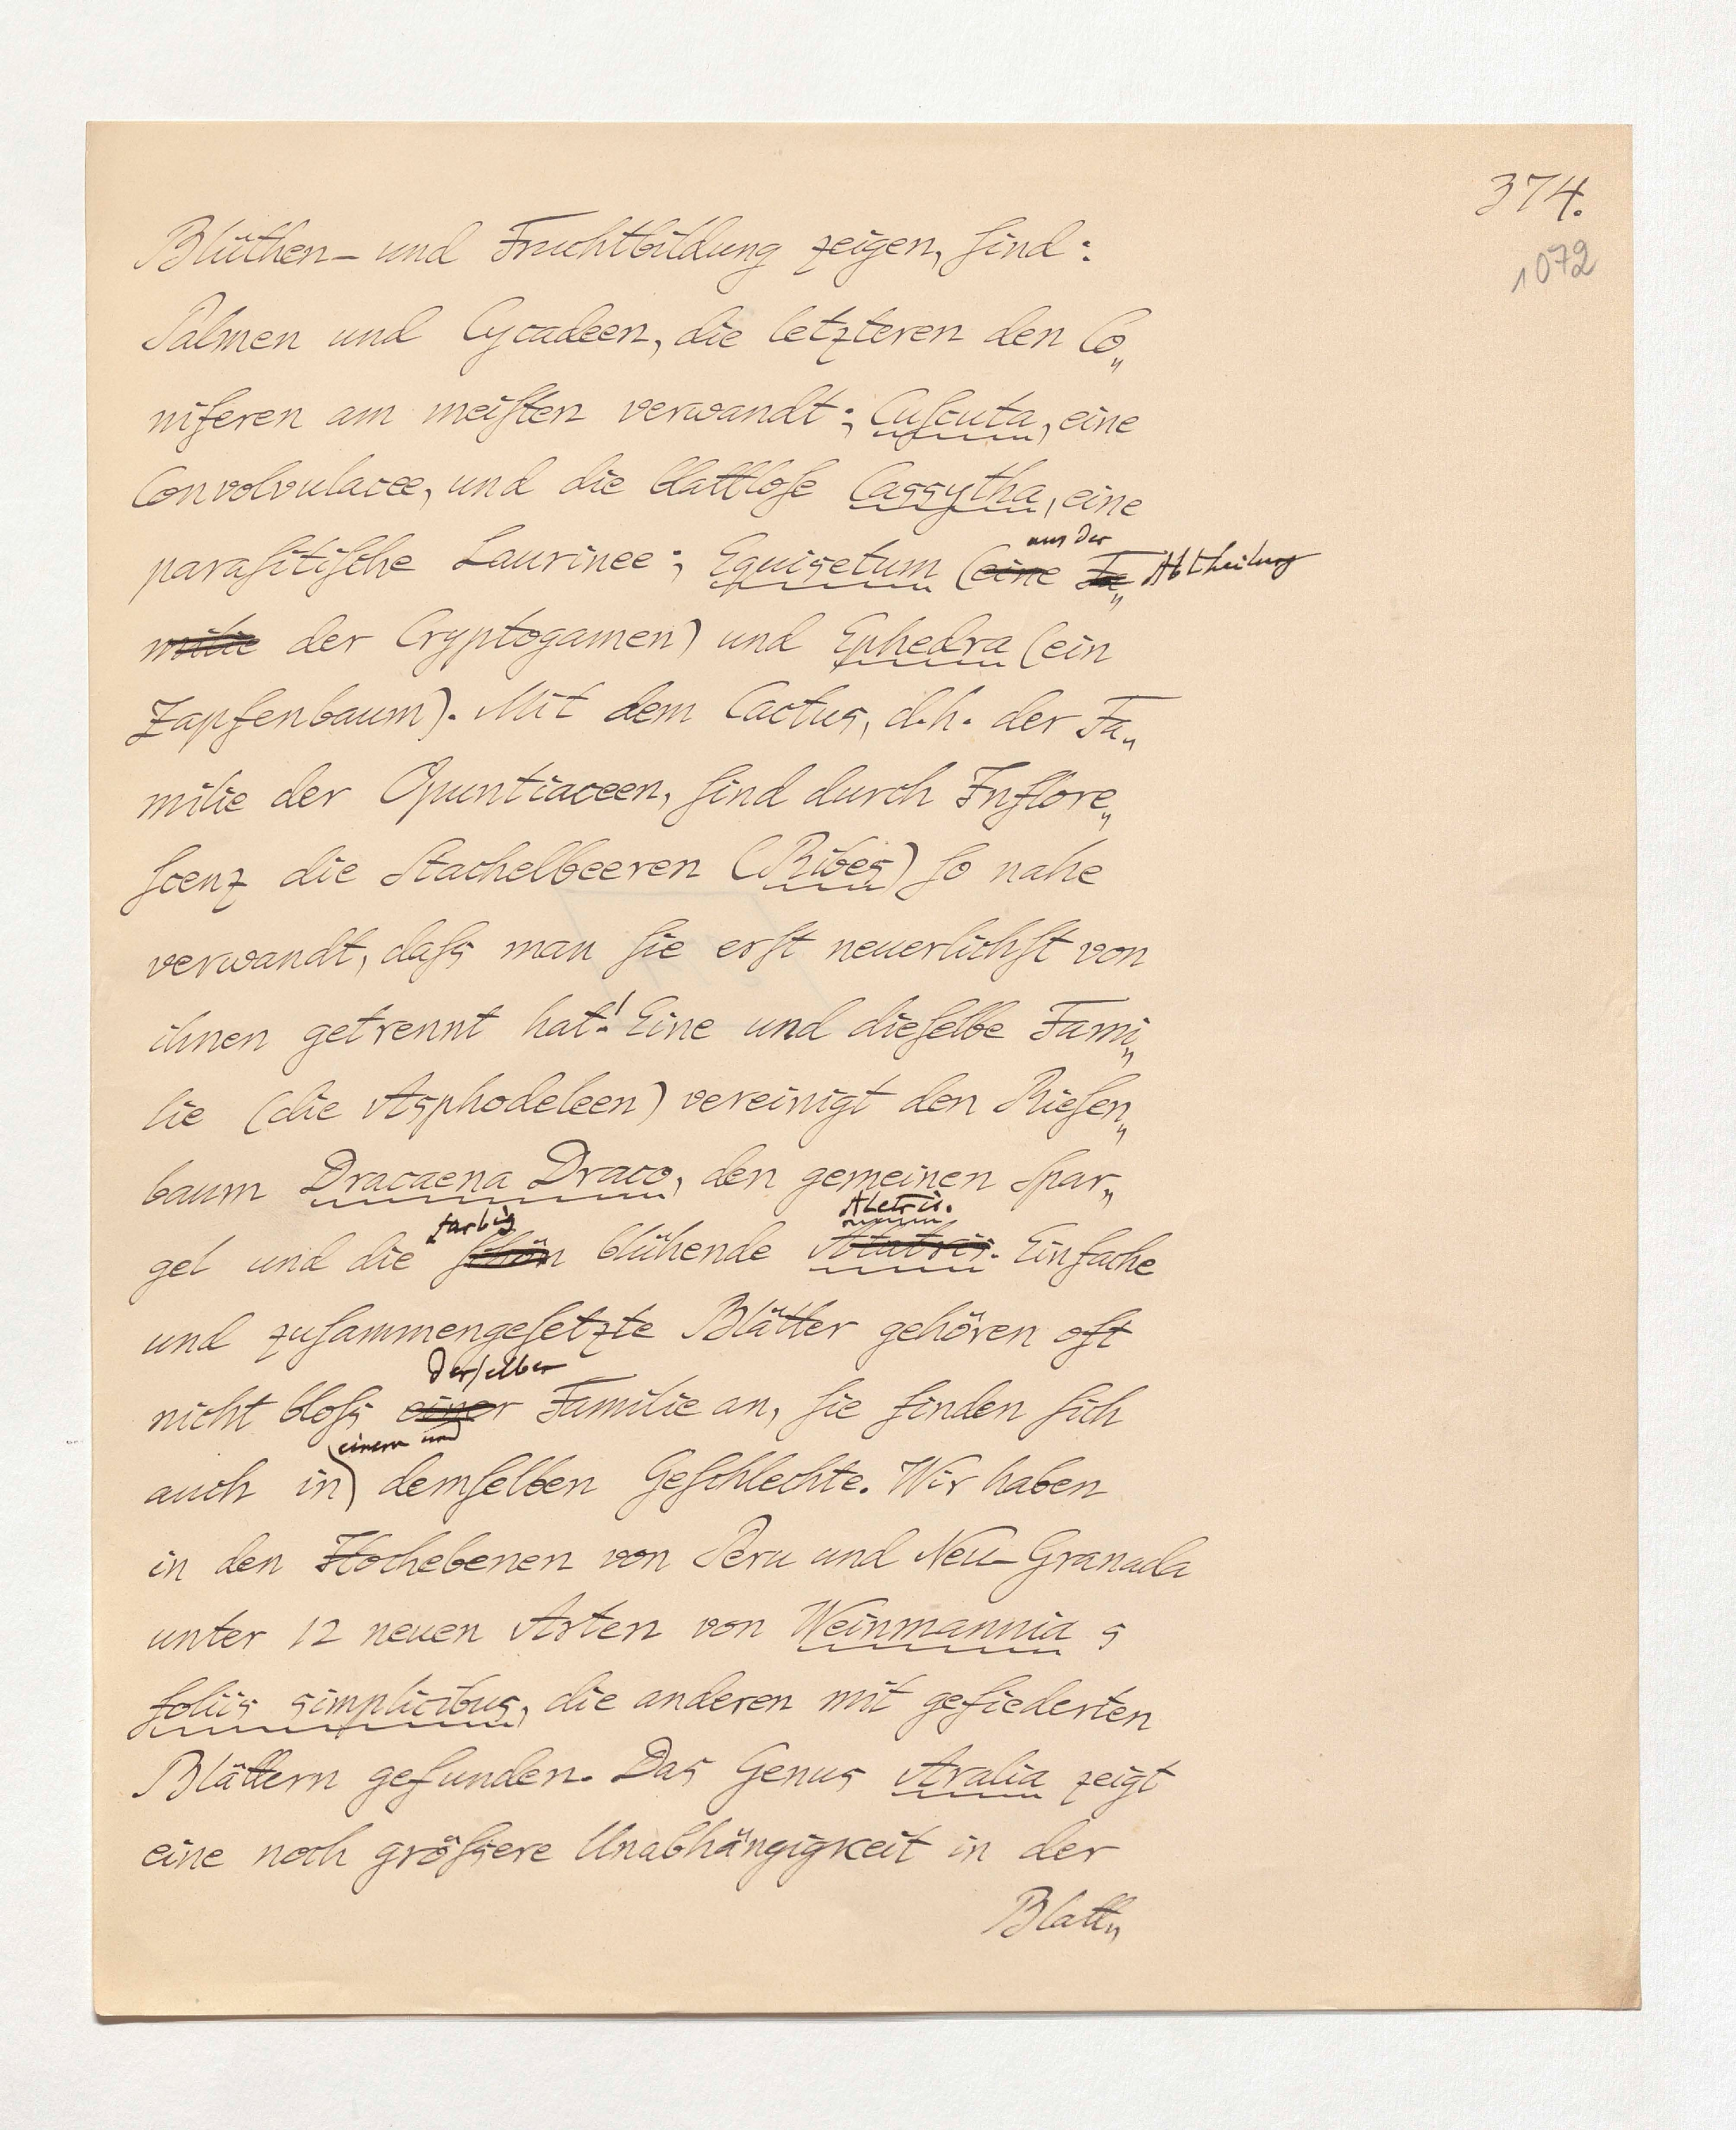 374.
1072
Blüthen- und Fruchtbildung zeigen, ſind:
Palmen und Cycadeen, die letzteren den Co„
niferen am meiſten verwandt; Cuſcuta, eine
Convolvulacee, und die blattloſe Cassytha, eine
aus der
paraſitiſche Laurinee; Equisetum (eine Fa„ Abtheilung
milie der Cryptogamen) und Ephedra (ein
Zapfenbaum). Mit dem Cactus, d.h. der Fa„
milie der Opuntiaceen, ſind durch Inflore„
ſcenz die Stachelbeeren (Ribes) ſo nahe
verwandt, daſs man ſie erſt neuerlichſt von
ihnen getrennt hat! Eine und dieſelbe Fami„
lie (die Asphodeleen) vereinigt den Rieſen„
baum Dracaena Draco, den gemeinen Spar„
farbig Aletris.
gel und die ſchön blühende Alatris. Einfache
und zuſammengeſetzte Blätter gehören oft
derſelben
nicht bloſs einer Familie an, ſie finden ſich
einem und
auch in demſelben Geſchlechte. Wir haben
in den Hochebenen von Peru und Neu-Granada
unter 12 neuen Arten von Weinmannia 5
foliis simplicibus, die anderen mit gefiederten
Blättern gefunden. Das Genus Aralia zeigt
eine noch gröſsere Unabhängigkeit in der
Blatt„